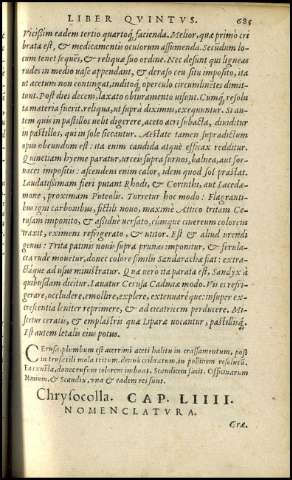 LIBER QVINTVS. 685
Vicissim eadem tertio quartoq; facienda. Melior, quæ primò cri
brata est, & medicamentis oculorum assumenda. Secundum lo-
cum tenet sequës, & reliquæ suo ordine. Nec desunt qui ligneas
rudes in medio vase appendant, & deraso eò situ imposito, ita
ut acetum non contingat, inditoq; operculo circumlinitos dimit-
tunt. Post dies decem, laxato obturamento visunt. Cumq; resolu
ta materia fuerit, reliqua, ut suprà diximus, exequuntur. Si au-
tem quis in pastillos velit digerere, aceto acri subacta, diuiditur
in pastilles, qui in sole siccantur. Aestate tamen supradictum
opus obeundum est: ita enim candida atque efficax redditur.
Quinetiam hyeme paratur, urceis supra furnos, balnea, aut for-
naces impositis: ascendens enim calor, idem quod sol præstat.
Laudatissimam fieri putant Rhodi, & Corinthi, aut Lacedæ-
mone, proximam Puteolis. Torretur hoc modo: Flagranti-
bus igni carbonibus, fictili nouo, maximè Attico tritam Ce-
rusam imponito, & assiduè versato, cumque cinereum colorem
traxit, eximens refrigerato, & utitor. Est & aliud urendi
genus: Trita patinis nouis supra prunas imponitur, & ferula-
cea rude mouetur, donec colore similis Sandarachæ fiat: extra-
ctáque ad usus ministratur. Quæ vero ita parata est, Sandyx à
quibusdam dicitur. Lauatur Cerusa Cadmiæ modo. Vis ei refri-
gerare, occludere, emollire, explere, extenuaréque: insuper ex-
crescentia leniter reprimere, & ad cicatricem perducere. Mi-
scetur ceratis, & emplastris quæ Liparæ vocantur, pastillísq;
Est autem letalis eius potus.
Cerusa, plumbum est acerrimi aceti halitu in crassamentum, post
in
Chrysocolla. CAP. LIIII.
NOMENCLATVRA.
Græ.